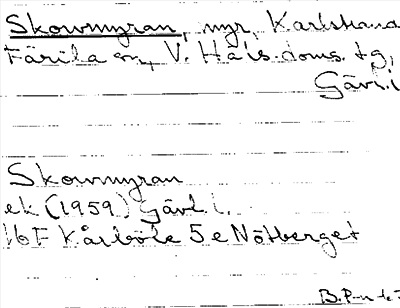 Skovmyran, myr, Karlstrand
Färila sn, V. Häls. doms. tg,
Gävl. l
Skovmyran
ek (1959) Gävl. l.
16F Kårböle 5 e Nötberget